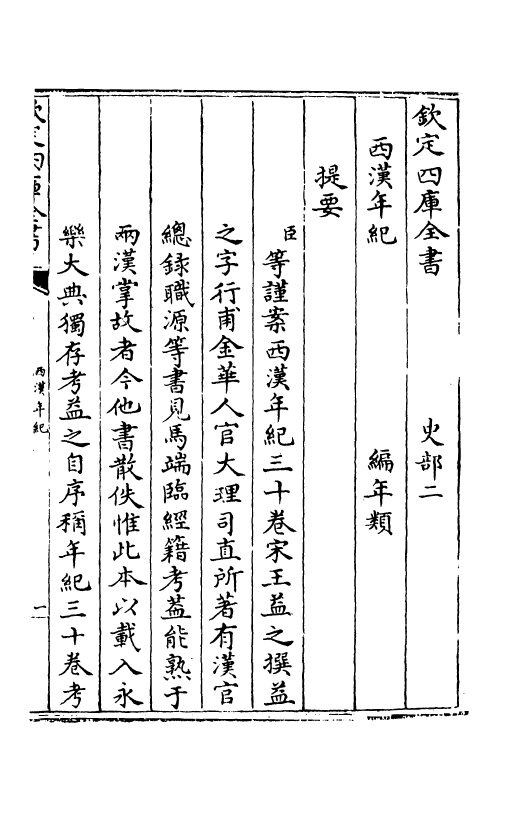 欽定四庫全書　史部二
西漢年紀　編年類
提要
臣等謹案西漢年紀三十卷宋王益之撰益
之字行甫金華人官大理司直所著有漢官
總録職源等書見馬端臨經籍考葢能熟于
兩漢掌故者今他書散佚惟此本以載入永
樂大典獨存考益之自序稱年紀三十卷考
欽定四庫全書
西漢年紀
一